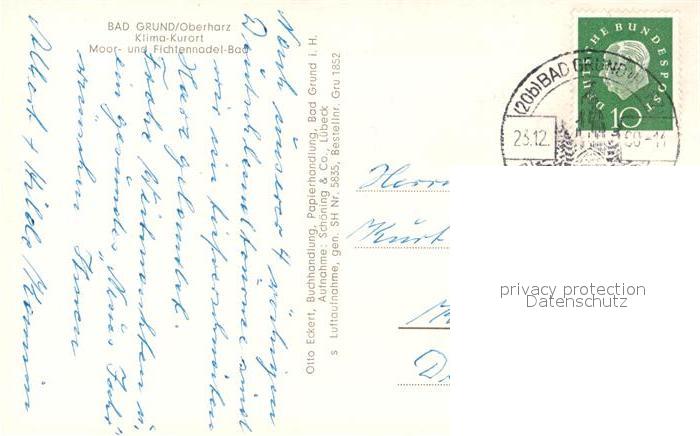 BAD GRUND/Oberharz
Klima-Kurort
Moor- und Fichtennadel-Bad
Nach unserer 4 wöchigen
Deutschlandtournee sind
wir im tiefverschneiten
Harz gelandet.
Frohe Weihnachten u.
ein gesundes „Neues Jahr"
wünschen Ihnen
Albert + Hilde
Otto Eckert, Buchhandlung, Papierhandlung, Bad Grund i. H.
Aufnahme: Schöning & Co., Lübeck
s Luftaufnahme, gen. SH Nr. 5835, Bestellnr. Gru 1852
DEUTSCHE BUNDESPOST
10
(20b) BAD GRUND
23.12. 60-14
Herrn
Kurt
privacy protection
Datenschutz